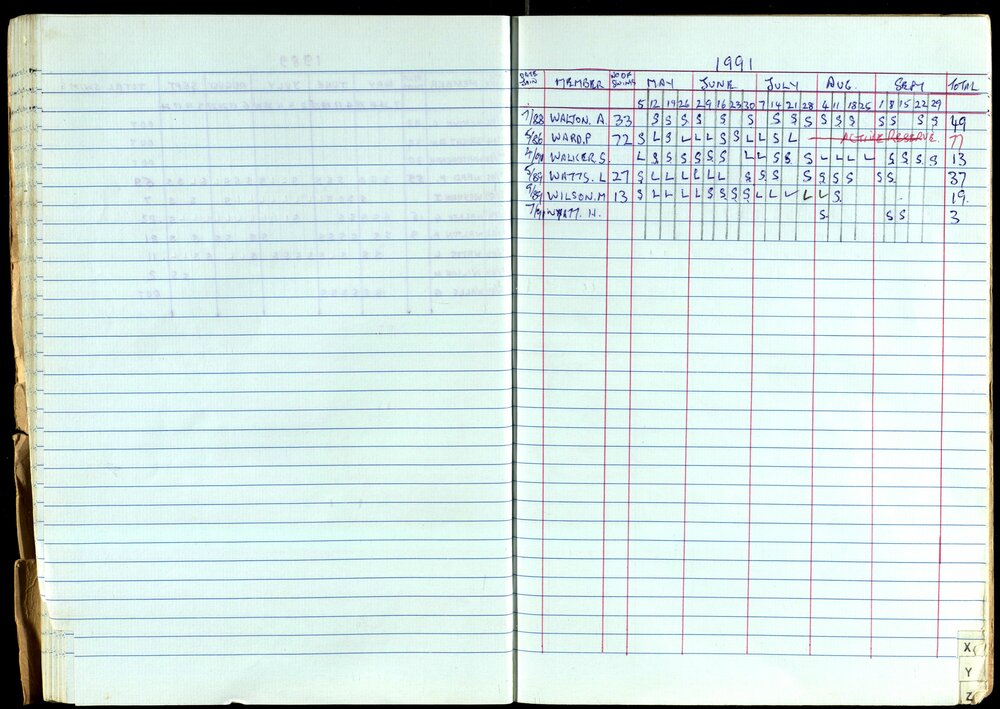 1991
DATE JOIN MEMBER NO OF SWIMS MAY JUNE JULY AUG. SEPT TOTAL
5 12 19 26 2 9 16 23 30 7 14 21 28 4 11 18 25 1 8 15 22 29
7/88 WALTON. A. 33 S S S S S S S S S S S S S S S S 49
WARD. P 72 S L S L L L S S L L S L ACTIVE RESERVE. 77
WALKER. S. L S S S S S S L L S S S L L L L S S S S 13
5/89 WATTS. L 27 S L L L L L L S S S S S S S S S 37
9/89 WILSON. M 13 S L L L L S S S S L L L L L S 19.
7/91 WYATT. H. S S S 3
X
Y
Z